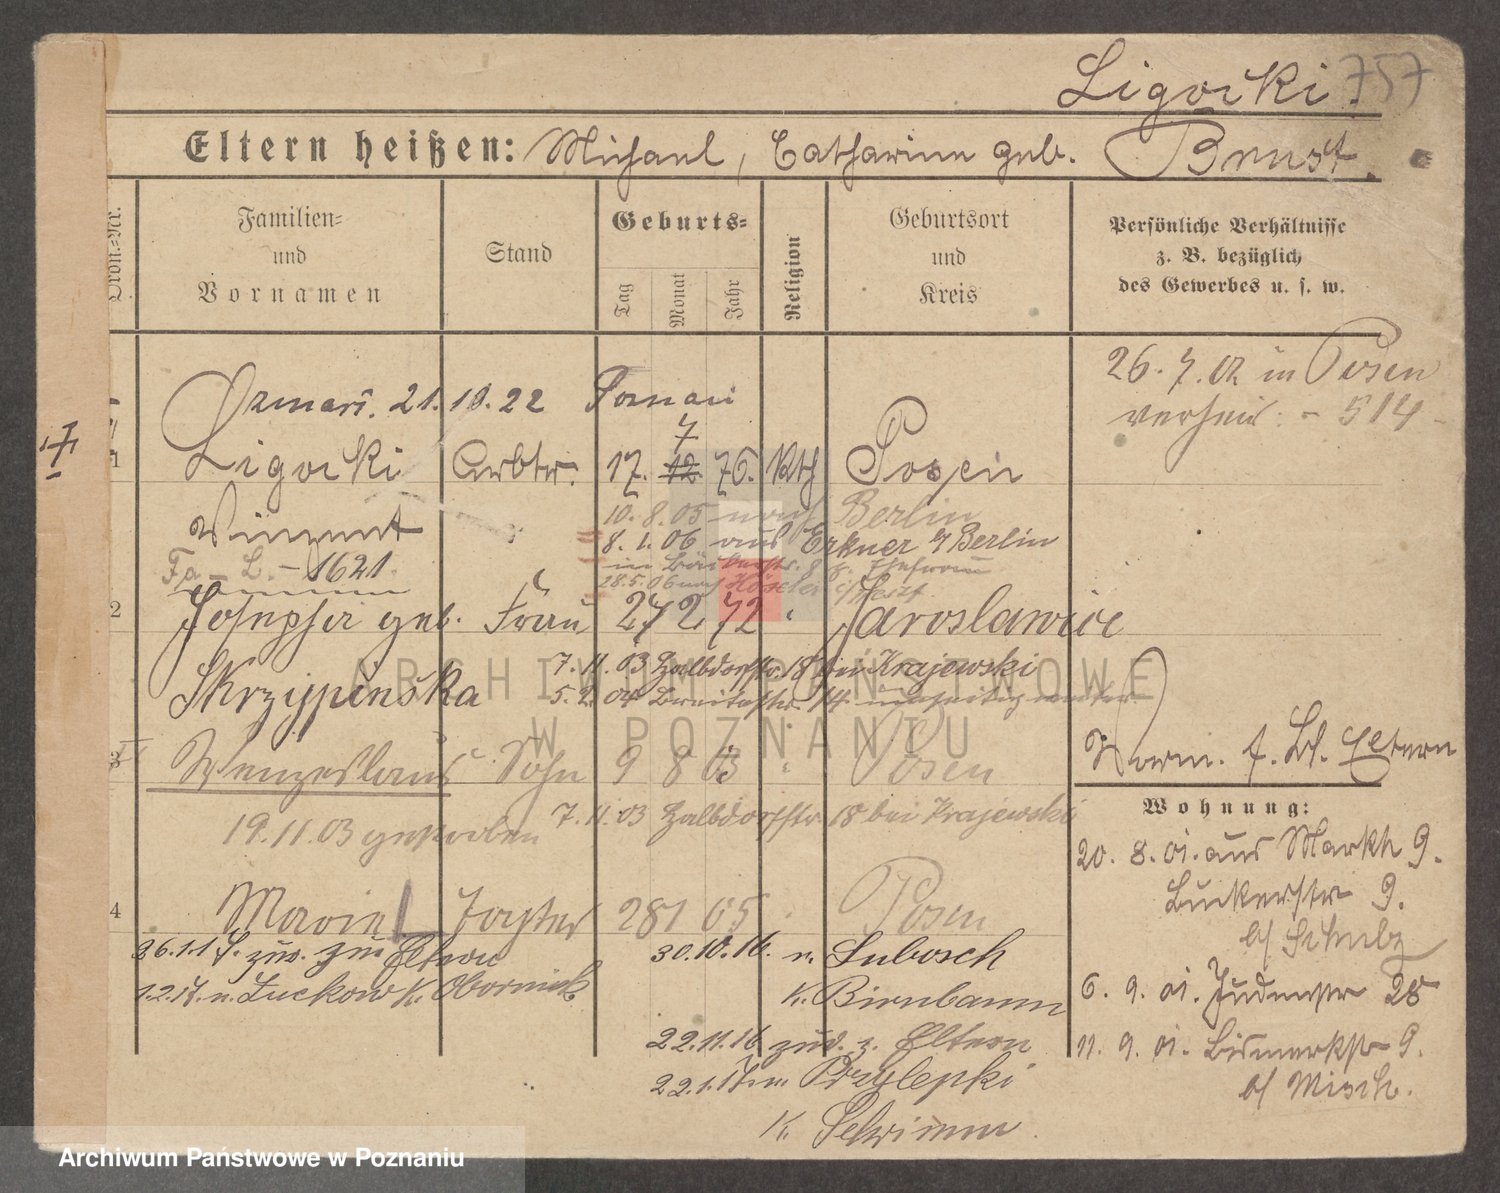 Ligocki. 757
Eltern heißen: Michael, Catharina geb. Brust.
Ordn.-Nr.
Familien- und Vornamen
Stand
Geburts-
Tag
Monat
Jahr
Religion
Geburtsort und Kreis
Persönliche Verhältnisse z. B. bezüglich des Gewerbes u. s. w.
26. 7. 02 in Posen
verheir. - 514
21.10.22 Poznań
7
1 Ligocki Arbtr. 17. 12. 76. Kth Posen
Vinzent
10. 8. 05 nach Berlin
8. 1. 06 aus Erkner b/Berlin
Fa - L. - 1621.
28.5.06 nach
2 Josepha geb. Frau 27 2 72 " Jaroslawice
Skrzypinska
7.11.03 Halbdorfstr. 18 bei Krajewski
5.2.04 Breitestr. 14
3 Wenzeslaus Sohn 9 8 03 " Posen
19.11.03 gestorben
7.11.03 Halbdorfstr 18 bei Krajewski
Vorm. f. Bl. Eltern
Wohnung:
20. 8. 01. aus Markt 9.
9.
b/ Schulz
6. 9. 01. Judenstr 28
11. 9. 01. Bismarckstr 9.
b/ Misch.
4 Marie L Tochter 28 1 05 " Posen
26.1.17. zur. zu Eltern
1.2.17. n. Luckow K. Obornik
30.10.16. n. Lubosch
K. Birnbaum
22.11.16 zur. z. Eltern
22.1.17 n. Przylepki
K. Schrimm
ARCHIWUM PAŃSTWOWE
W POZNANIU
Archiwum Państwowe w Poznaniu